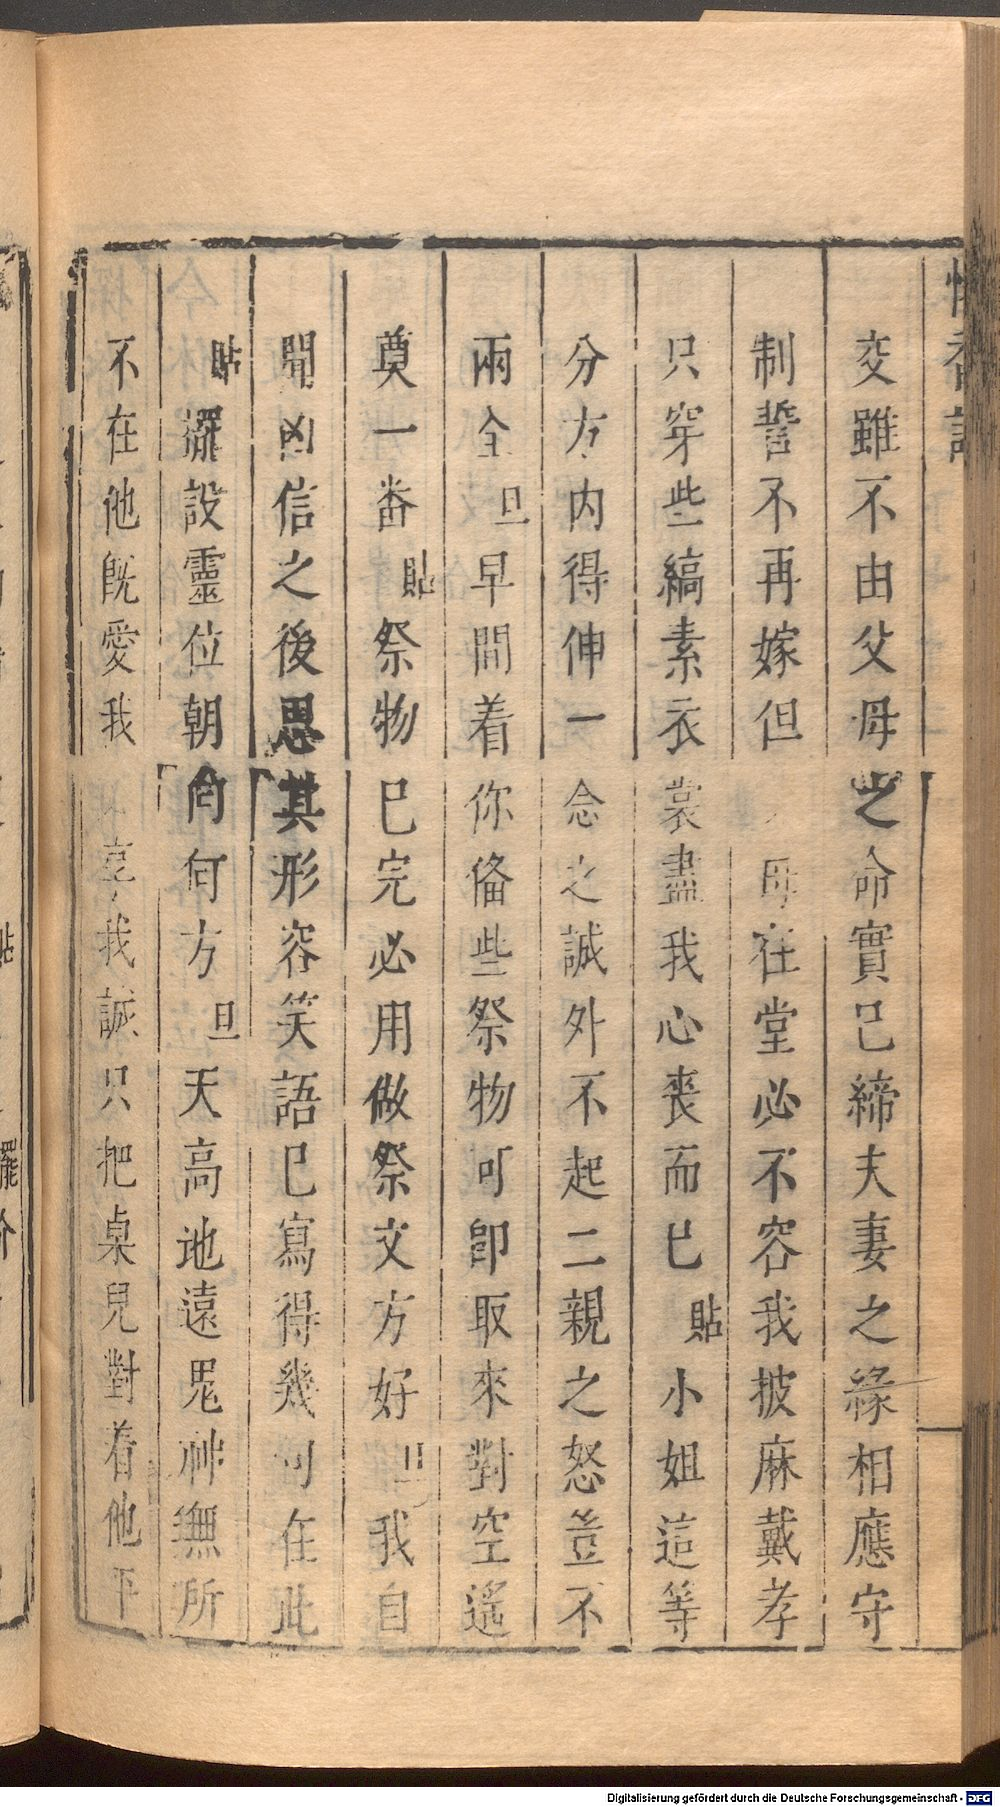 憐香記
交雖不由父母之命實已締夫妻之緣相應守
制誓不再嫁但母在堂必不容我披麻戴孝
只穿些縞素衣裳盡我心喪而已貼小姐這等
分方内得伸一念之誠外不起二親之怒豈不
兩全旦早間着你俻些祭物可卽取來對空遙
奠一番貼祭物已完必用做祭文方好旦我自
聞凶信之後思其形容笑語已寫得幾句在此
貼擺設靈位朝向何方旦天高地遠鬼神無所
不在他旣愛我享我誠只把桌兒對着他下
Digitalisierung gefördert durch die Deutsche Forschungsgemeinschaft - DFG